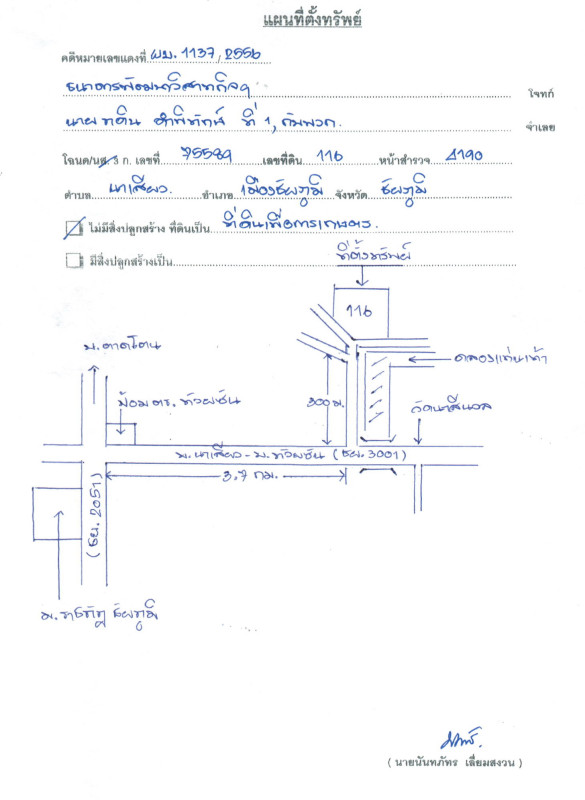 แผนที่ตั้งทรัพย์
คดีหมายเลขแดงที่ ผบ. 1137/2556
ธนาคารพัฒนาวิสาหกิจฯ โจทก์
นาย ที่ 1, กับพวก จำเลย
โฉนด/นส.3 ก. เลขที่ 75589 เลขที่ดิน 116 หน้าสำรวจ 4190
ตำบล นาเสียว อำเภอ เมืองชัยภูมิ จังหวัด ชัยภูมิ
ไม่มีสิ่งปลูกสร้าง ที่ดินเป็น ที่ดินเพื่อการเกษตร
มีสิ่งปลูกสร้างเป็น
ที่ตั้งทรัพย์
116
น.ตาดโตน
ป้อม ตร. ห้วยชัน
300 ม.
วัดนาสีนวล
ถ.นาเสียว - บ.ห้วยชัน (ชย. 3001)
3.7 กม.
(ชย. 2051)
ม.ราชภัฏ ชัยภูมิ
(นายนันทภัทร เลี่ยมสงวน)